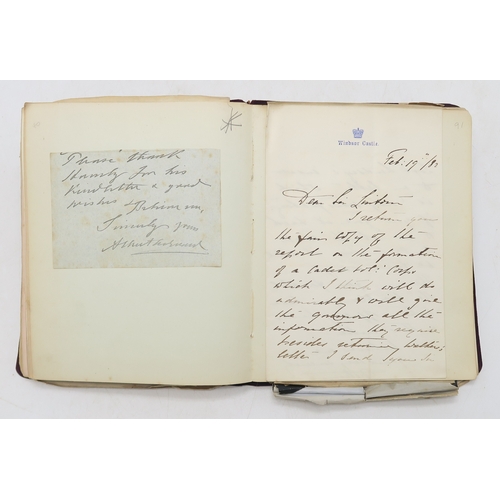 Please thank
for his
kind letter & good
wishes & believe me
Sincerely yours
Windsor Castle
Feb. 19
Dear Sir
I return you
the fair copy of the
report on the formation
of a Cadet Vol: Corps
which I think will do
admirably & will give
the governors all the
information they require
besides returning
letter I send you